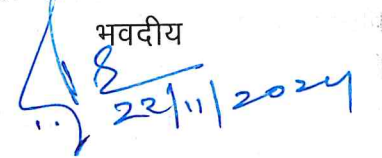 भवदीय
22/11/2024